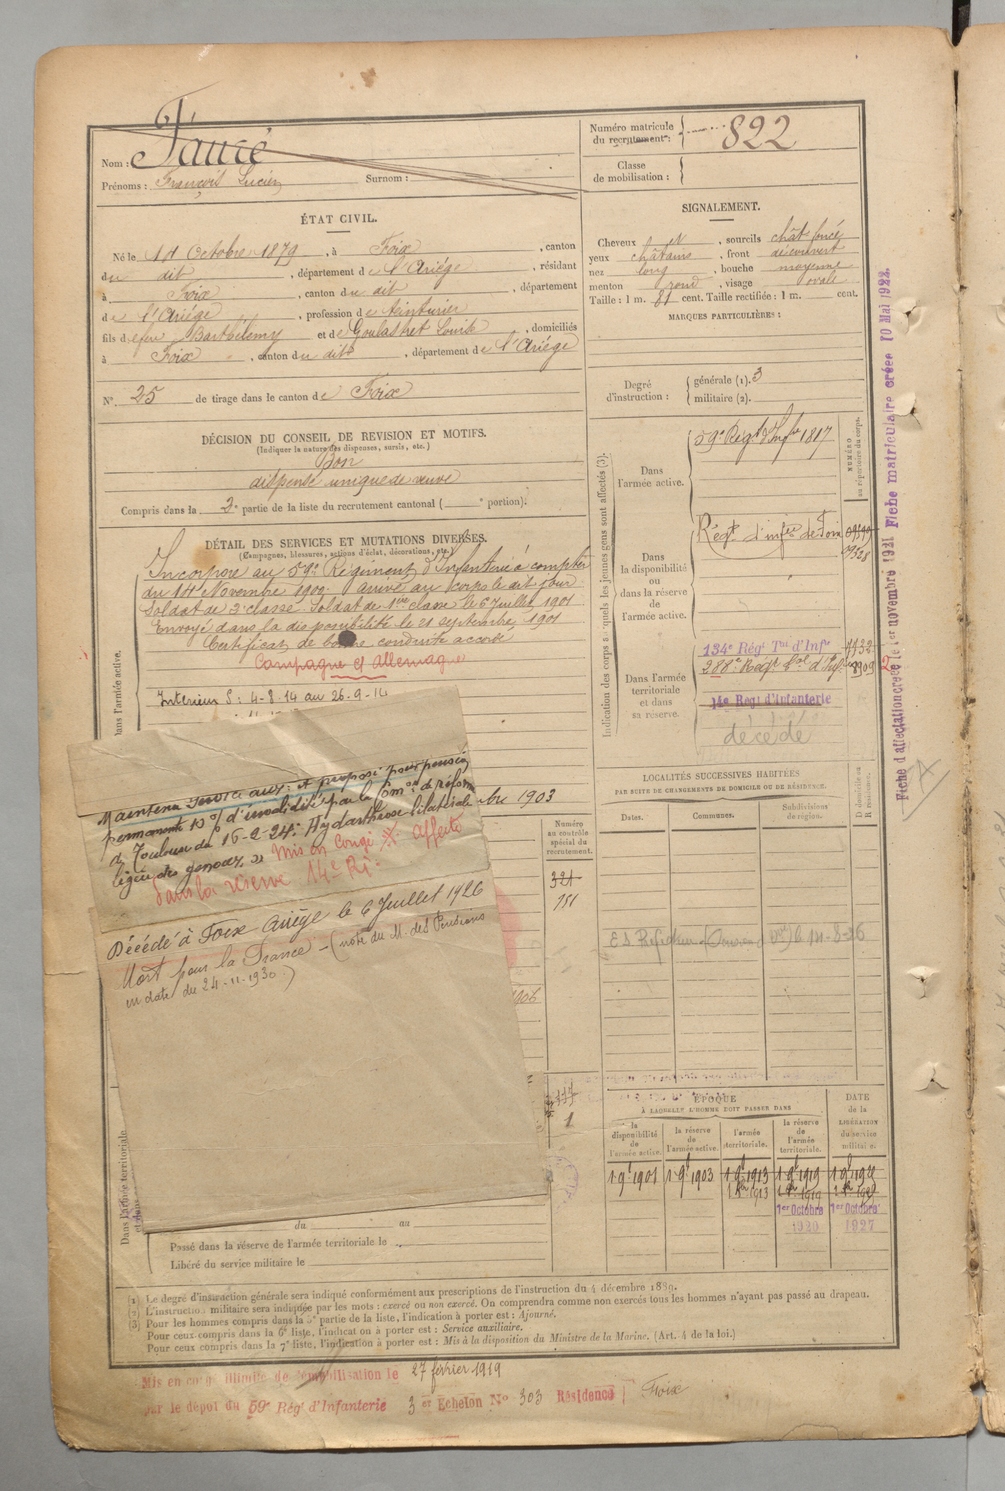 Nom : Fauré
Prénoms : François Lucien Surnom :
Numéro matricule du recrutement : 822
Classe de mobilisation :
ÉTAT CIVIL.
Né le 14 Octobre 1879, à Foix, canton
du dit, département de l'Ariège, résidant
à Foix, canton du dit, département
de l'Ariège, profession de teinturier
fils de feu Barthélemy et de Goulastret Lourde, domiciliés
à Foix, canton du dit, département de l'Ariège
N° 25 de tirage dans le canton de Foix
DÉCISION DU CONSEIL DE REVISION ET MOTIFS.
(Indiquer la nature des dispenses, sursis, etc.)
Bon
dispensé unique de veuve
Compris dans la 2e partie de la liste du recrutement cantonal ( e portion).
SIGNALEMENT.
Cheveux et, sourcils chât foncé
yeux châtains, front découvert
nez long, bouche moyenne
menton rond, visage ovale
Taille : 1 m. 81 cent. Taille rectifiée : 1 m. cent.
MARQUES PARTICULIÈRES :
Degré d'instruction :
générale (1). 3
militaire (2).
DÉTAIL DES SERVICES ET MUTATIONS DIVERSES.
(Campagnes, blessures, actions d'éclat, décorations, etc.)
Dans l'armée active.
Incorporé au 59e Régiment d'Infanterie à compter
du 14 Novembre 1900. Arrivé au corps le dit jour
Soldat de 2e classe. Soldat de 1ère classe le 6 Juillet 1901
Envoyé dans la disponibilité le 21 septembre 1901
Certificat de bonne conduite accordé
Campagne c/ Allemagne
Intérieur S : 4-8-14 au 26-9-14
Maintenu service aux: et proposé pour pension
permanente 15 % d'invalidité par la Com on de réforme
de Toulouse du 16-2-24: Hydarthrose bilatérale
légère des genoux, »
Mis en Congé Affecté
dans la réserve 14e RI.
Décédé à Foix Ariège le 6 Juillet 1926
Mort pour la France - (note du M. des Pensions
en date du 24-11-1930)
bre 1903
1906
Numéro au contrôle spécial du recrutement.
321
751
1
Indication des corps auxquels les jeunes gens sont affectés (3).
NUMÉRO au répertoire du corps.
Dans l'armée active.
59e Régt d'Infie 1817
Dans la disponibilité ou dans la réserve de l'armée active.
Régt d'infie de Foix
Dans l'armée territoriale et dans sa réserve.
134e Régt Tal d'Infie
288e Régt Tal d'Inf
14e Regt d'Infanterie
décédé
LOCALITÉS SUCCESSIVES HABITÉES
PAR SUITE DE CHANGEMENTS DE DOMICILE OU DE RÉSIDENCE.
Dates. Communes. Subdivisions de région. D domicile ou R résidence.
ÉPOQUE
À LAQUELLE L'HOMME DOIT PASSER DANS
la disponibilité de l'armée active.
la réserve de l'armée active.
l'armée territoriale.
la réserve de l'armée territoriale.
DATE de la LIBÉRATION du service militaire.
1 9b 1901 1 9b 1903 1 9b 1913 1 9b 1919
1er Octobre 1920 1er Octobre 1927
Dans l'armée territoriale et dans
du au
Passé dans la réserve de l'armée territoriale le
Libéré du service militaire le
(1) Le degré d'instruction générale sera indiqué conformément aux prescriptions de l'instruction du 4 décembre 1889.
(2) L'instruction militaire sera indiquée par les mots : exercé ou non exercé. On comprendra comme non exercés tous les hommes n'ayant pas passé au drapeau.
(3) Pour les hommes compris dans la 5e partie de la liste, l'indication à porter est : Ajourné.
Pour ceux compris dans la 6e liste, l'indication à porter est : Service auxiliaire.
Pour ceux compris dans la 7e liste, l'indication à porter est : Mis à la disposition du Ministre de la Marine. (Art. 4 de la loi.)
Mis en congé illimité de démobilisation le 27 février 1919
par le dépôt du 59e Régt d'Infanterie 3 er Echelon No 303 Résidence Foix
Fiche d'affectation créée le 1er novembre 1921 Fiche matriculaire créée 10 Mai 1922.